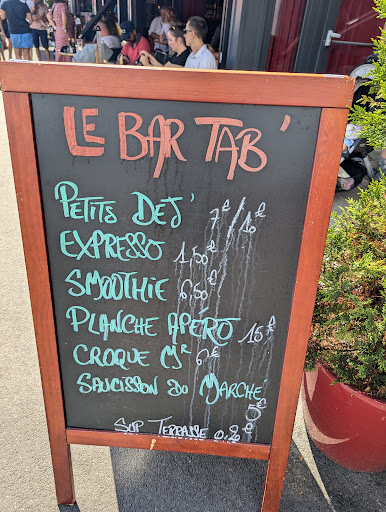 LE BAR TAB'
PETITS DEJ' 7€/10€
EXPRESSO 1,50€
SMOOTHIE 6,50€
PLANCHE APÉRO 15€
CROQUE Mr 6€
SAUCISSON DU MARCHE 5€
SUP TERRASSE 0,20€